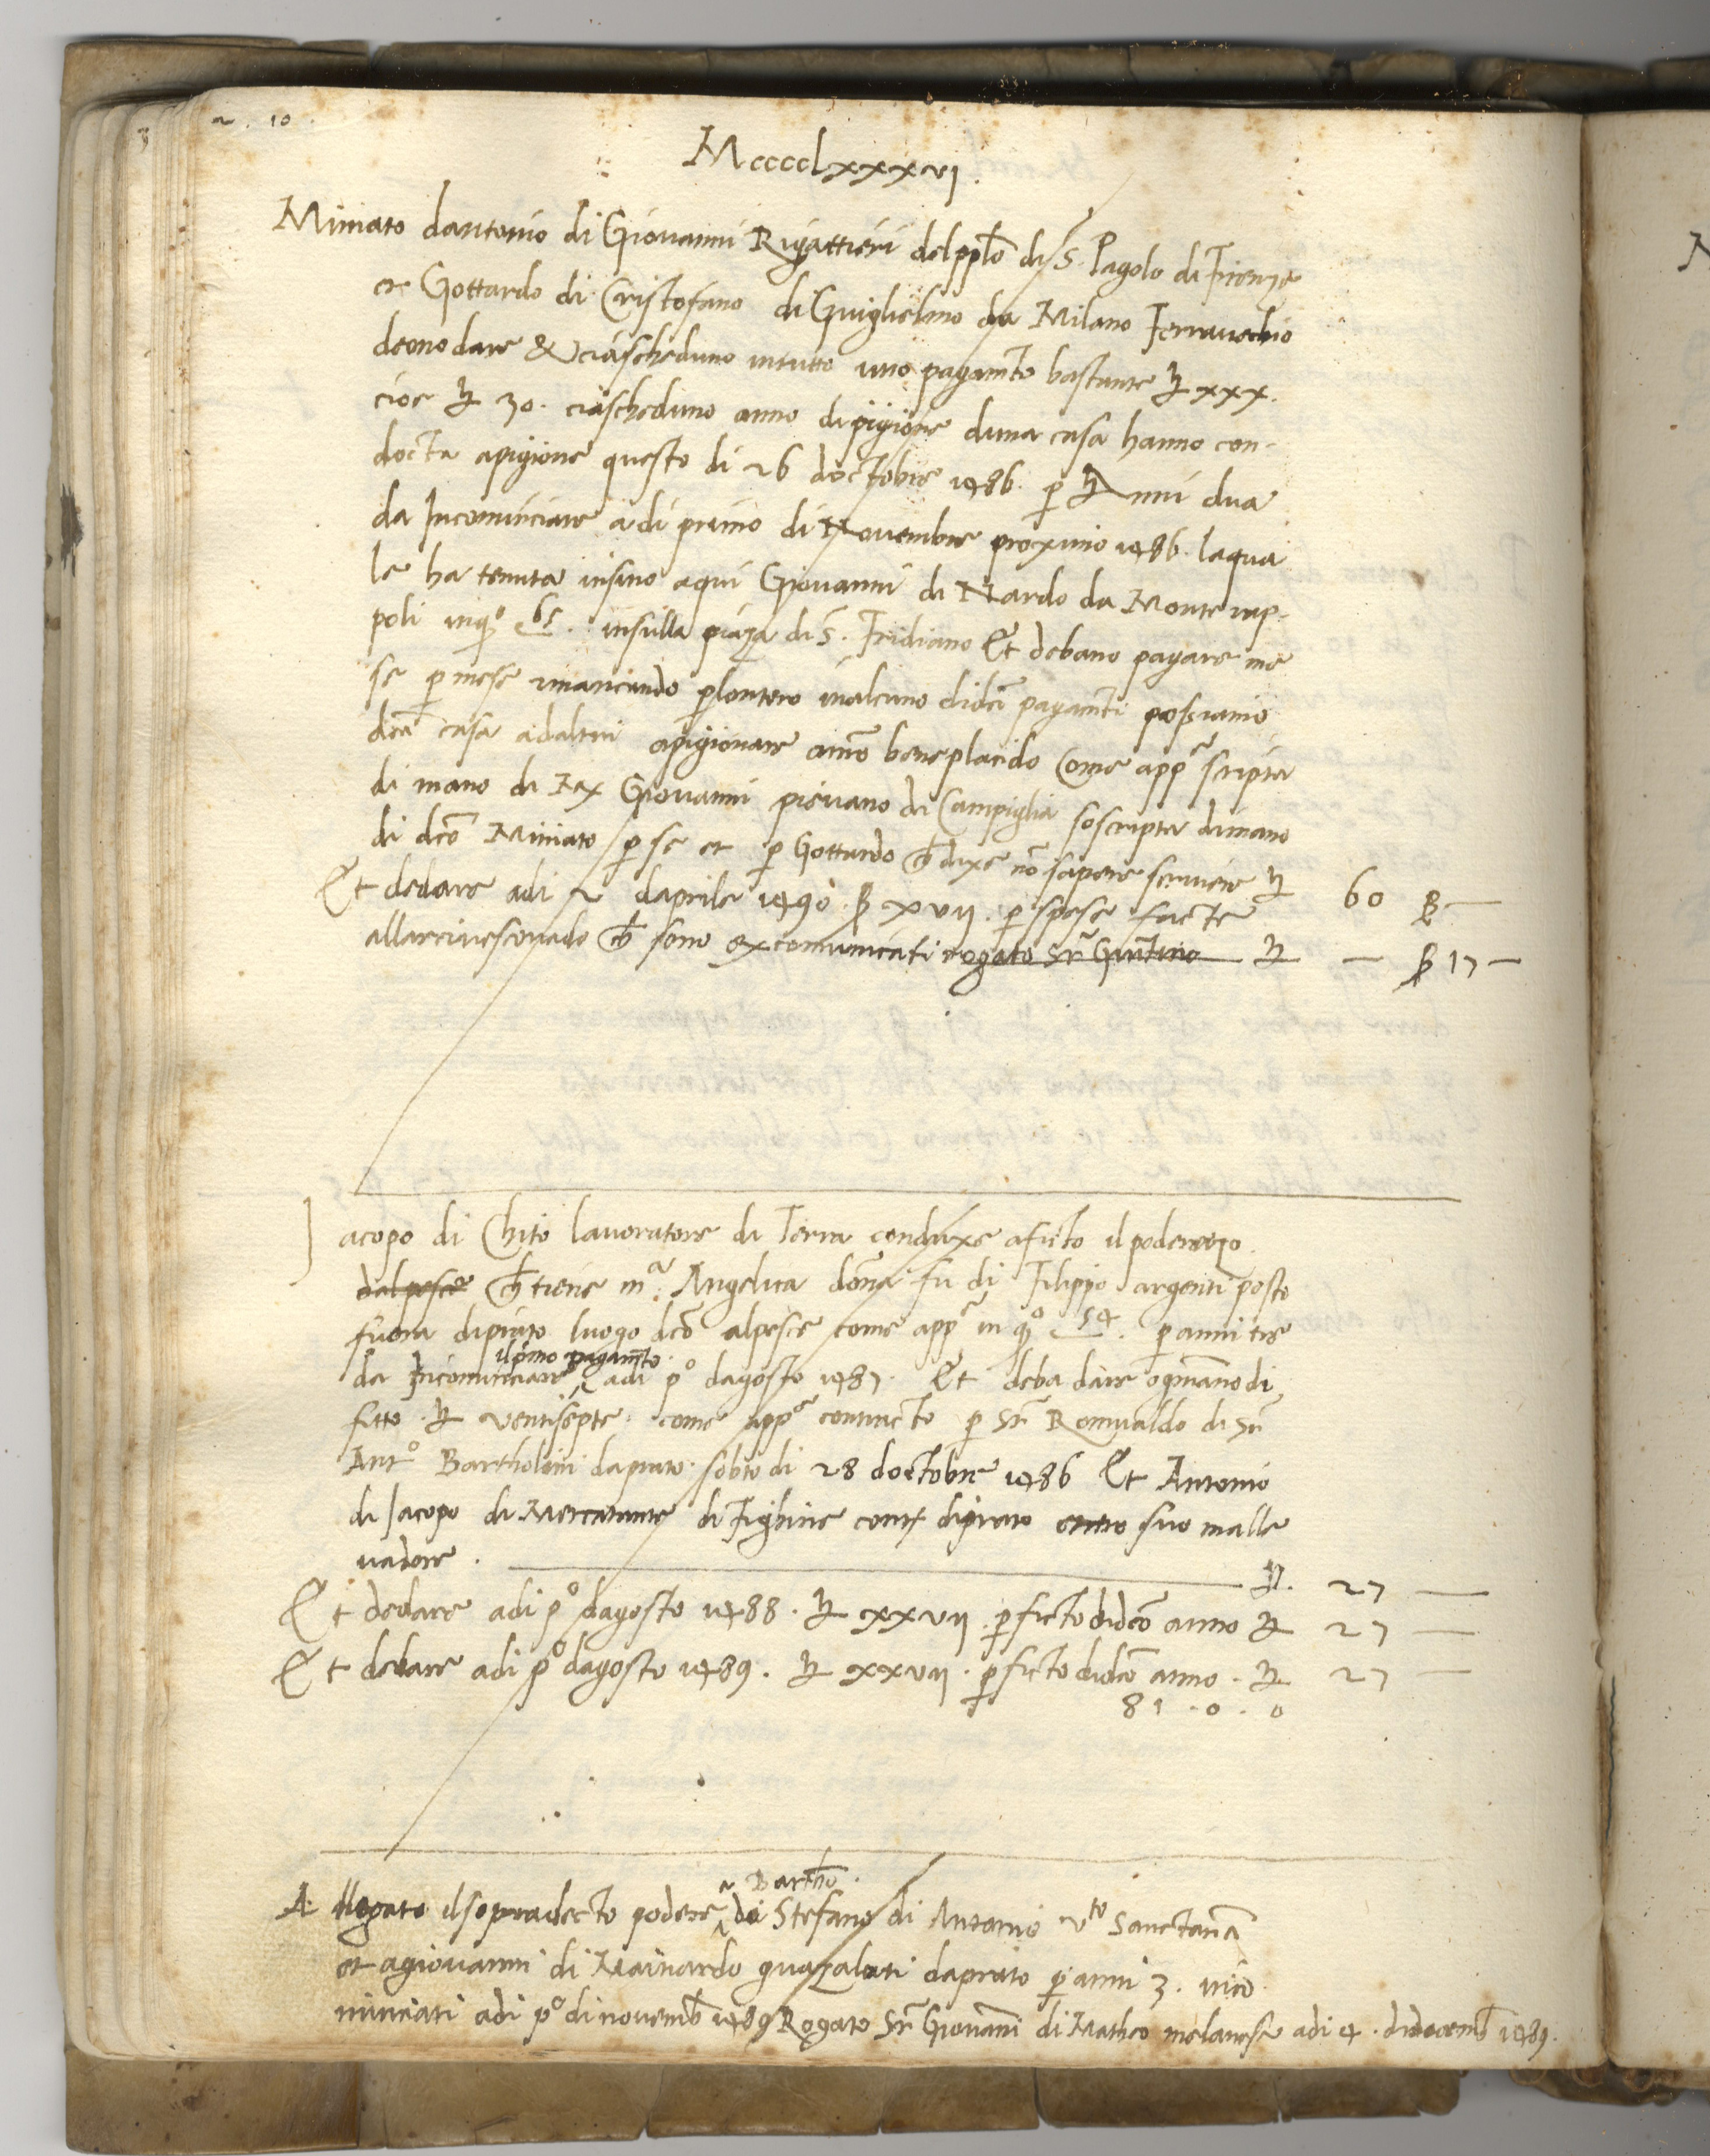 2. 10
Mcccclxxxvj.
Miniato dantonio di Giovanni Rigattieri del pplo di S. Pagolo di Firenze
et Gottardo di Cristofano di Guiglielmo da Milano Ferravechio
deono dare & ciascheduno intutto uno pagamto bastante ₶ xxx.
cioe ₶ 30. ciascheduno anno di pigione duna casa hanno con-
docta apigione questo di 26 doctobre 1486. p Anni dua
da Incominciare adi primo di Novembre proximo 1486. laqua
le ha tenuta insino aqui Giovanni di Nardo da Monte
poli inqo insulla piaza di S. Fridiano Et debano pagare me
se p mese mancando plontero inalcuno didci pagamti possiamo
dca casa adaltri apigionare ano beneplacido Come appe scripta
di mano di Giovanni piovano di Campiglia soscripta dimano
di dco Miniato p se et p Gottardo ch dixe no sapere scrivere ₶ 60 ß —
Et dedare adi 2 daprile 1490 ß xvij. p spese facte
allarcivescovado ch sono excomunicati rogato Sr Giuntino ₶ — ß 17 —
Jacopo di Chito lavoratore di Terra conduxe aficto il poderezo
dalpesce ch tiene ma Angelica dona fu di Filippo argenti posto
fuora diprato luogo dco alpesce come appe in qo 54. p anni tre
da Incominciare il pimo pagamto adi po dagosto 1487. Et deba dare ognianno di
fitto ₶ ventisepte come appe contracto p Sr Romualdo di Sr
Anto Bartholini daprato sobto di 28 doctobre 1486 Et Antonio
di Jacopo di Mercatante di Fighine diprato entro suo malle
vadore. ₶. 27 —
Et dedare adi po dagosto 1488. ₶ xxvij. p ficto didco anno ₶ 27 —
Et dedare adi po dagosto 1489. ₶ xxvij. p ficto didco anno. ₶ 27 —
81. 0. 0
Allogato il sopradecto podere a Bartho di Stefano di Antonio vto
et agiovanni di Mainardo guazalati daprato p anni 3. inco
minciati adi po di novemb 1489 Rogato Sr Giovani di Matheo melanese adi 4. didecemb 1489.